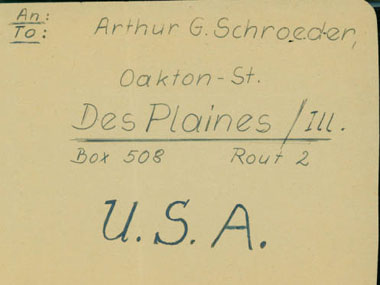 An:
To: Arthur G. Schroeder,
Oakton-St.
Des Plaines / Ill.
Box 508 Rout 2
U.S.A.